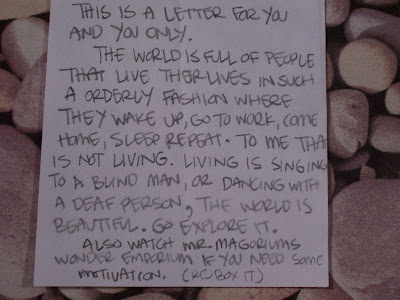 THIS IS A LETTER FOR YOU
AND YOU ONLY.
THE WORLD IS FULL OF PEOPLE
THAT LIVE THER LIVES IN SUCH
A ORDERLY FASHION WHERE
THEY WAKE UP, GO TO WORK, COME
HOME, SLEEP REPEAT. TO ME THAT
IS NOT LIVING. LIVING IS SINGING
TO A BLIND MAN, OR DANCING WITH
A DEAF PERSON, THE WORLD IS
BEAUTIFUL. GO EXPLORE IT.
ALSO WATCH MR. MAGORIUMS
WONDER EMPORIUM IF YOU NEED SOME
MOTIVATION. (RED BOX IT)